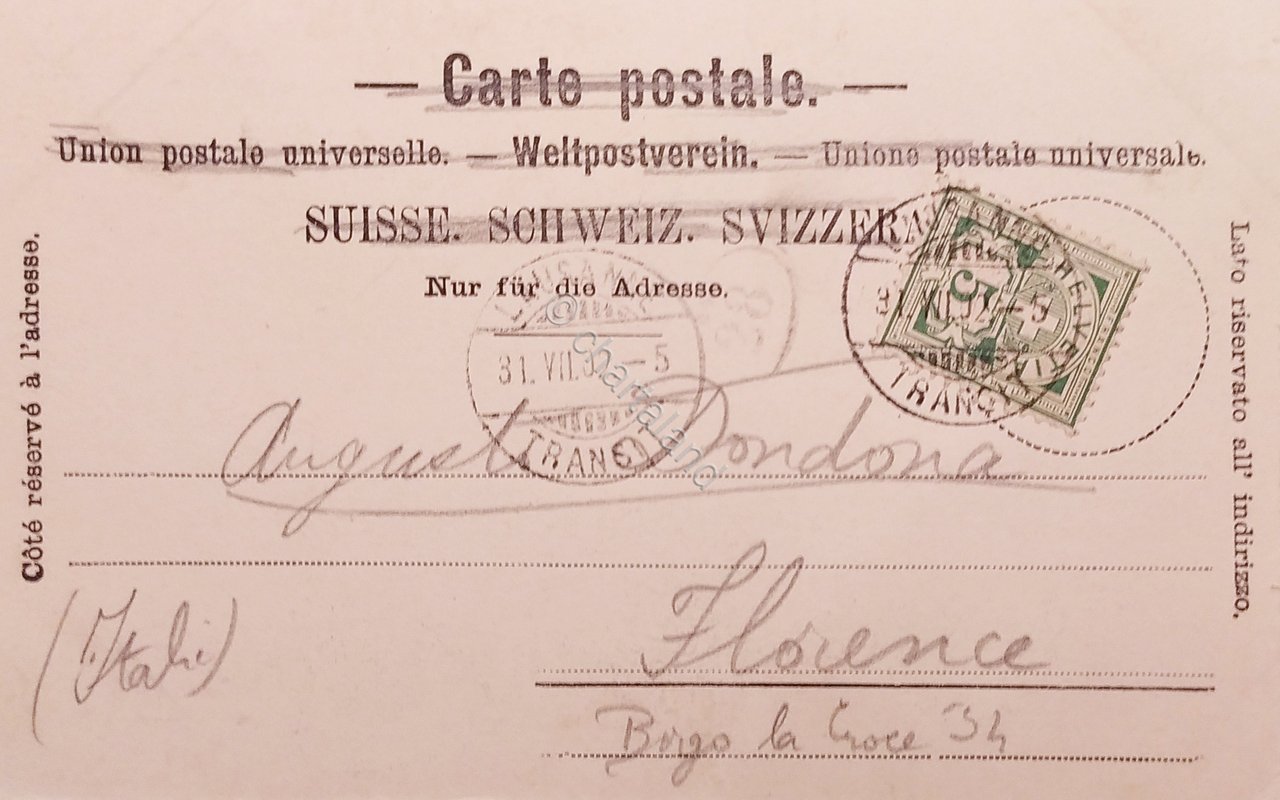 — Carte postale. —
Union postale universelle. — Weltpostverein. — Unione postale universale.
SUISSE. SCHWEIZ. SVIZZERA
Nur für die Adresse.
Côté réservé à l'adresse.
Lato riservato all' indirizzo.
HELVETIA
5
31. VII. –5
TRANS
–5
TRANS
© chartaland
Dondona
Florence
(Italie)
Borgo la Croce 34